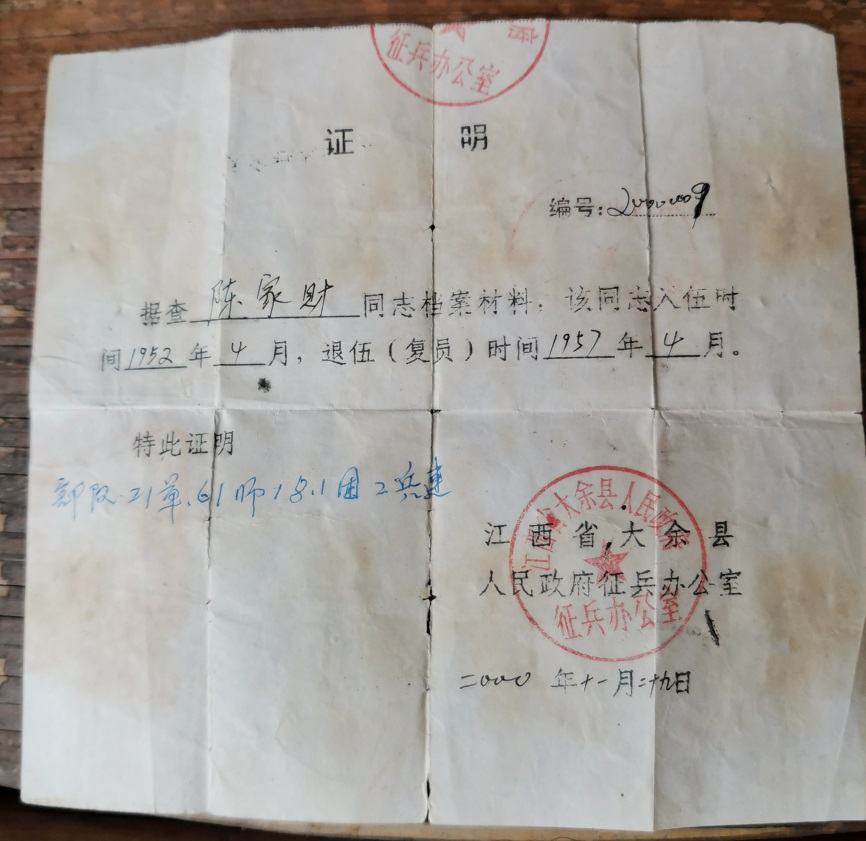 征兵办公室
证明
编号:2000009
据查 陈家财 同志档案材料，该同志入伍时
间 1952 年 4 月，退伍(复员)时间 1957 年 4 月。
特此证明
部队 21军.61师181团工兵连
江西省大余县人民政府
征兵办公室
江西省大余县
人民政府征兵办公室
二000年十一月二十九日